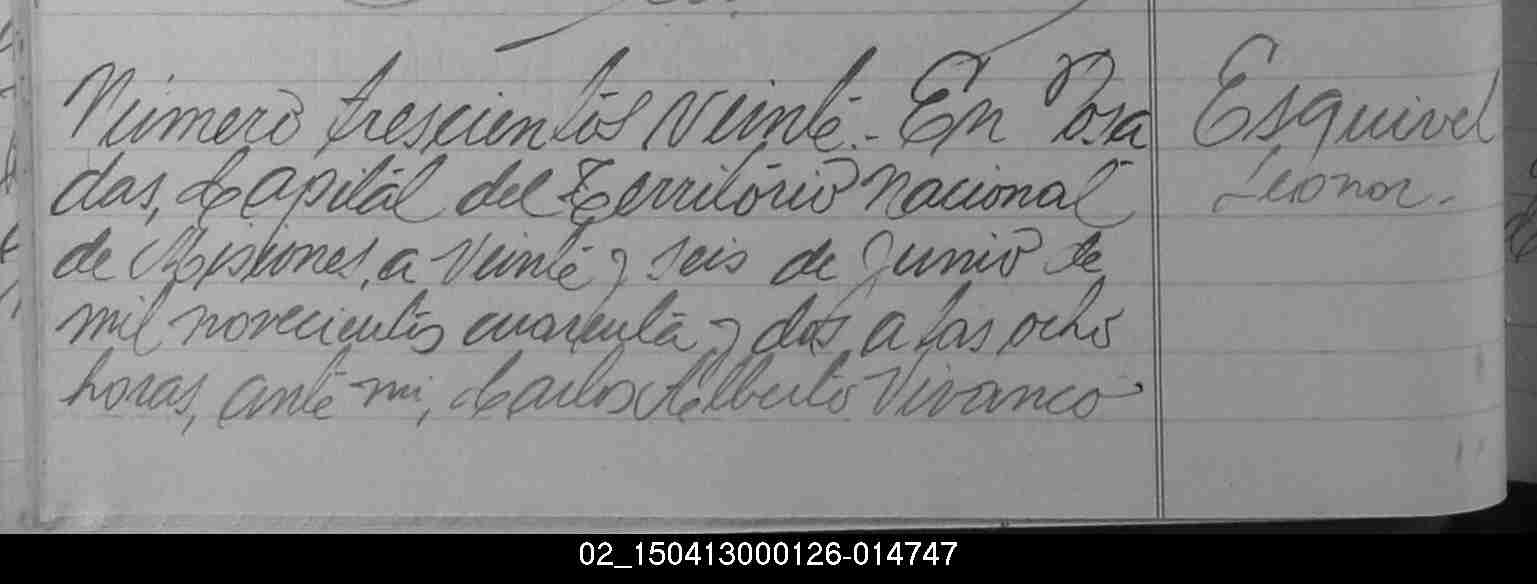 Número trescientos veinte.- En Posa
das, Capital del Territorio Nacional
de Misiones, a veinte y seis de Junio de
mil novecientos cuarenta y dos, a las ocho
horas, ante mi, Carlos Alberto Vivanco
Esquivel
Leonor.-
02_150413000126-014747